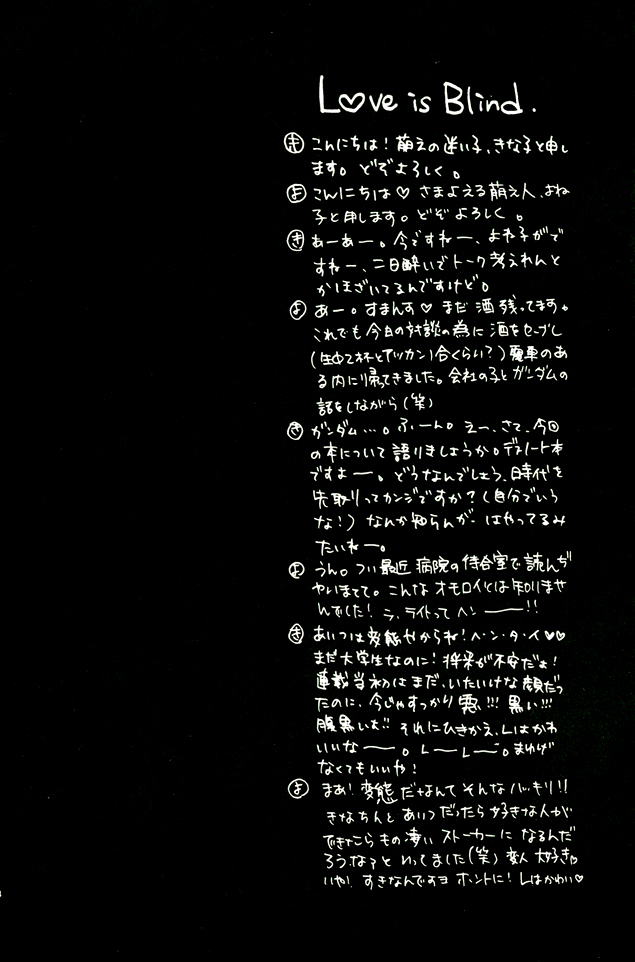 Love is Blind.
き こんにちは！萌えの迷い子、きな子と申し
ます。どぞよろしく。
よ こんにちは♡ さまよえる萌え人、よね
子と申します。どぞよろしく。
き あーあー。今ですねー、よね子がで
すねー、二日酔いでトーク考えれんと
かほざいてるんですけど。
よ あー。すまんす♡ まだ酒残ってます。
これでも今日の対談の為に酒をセーブし
(生中2杯とアツカン1合くらい？)電車のあ
る内に帰ってきました。会社の子とガンダムの
話をしながら(笑)
き ガンダム…。ふーん。えー、さて、今回
の本について語りましょうか。デスノート本
ですよー。どうなんでしょう、時代を
先取りってカンジですか？(自分でいう
な！)なんか知らんが、はやってるみ
たいねー。
よ うん。つい最近病院の待合室で読んぢ
ゃいまてて。こんなオモロイとは知りませ
んでした！ラ、ライトってヘンーー!!
き あいつは変態やからね！ヘ・ン・タ・イ♡♡
まだ大学生なのに！将来が不安だよ！
連載当初はまだ、いたいけな顔だっ
たのに、今じゃすっかり悪い!!!黒い!!!
腹黒いよ!!それにひきかえ、Lはかわ
いいなー。LーLー。まゆげ
なくてもいいや！
よ まあ！変態だなんてそんなバッキリ!!
きなちんとあいつだったら好きな人が
できたらもの凄いストーカーになるんだ
ろうなぁといってました(笑)変人大好き♡
いや！すきなんですヨホントに！Lはかわい♡